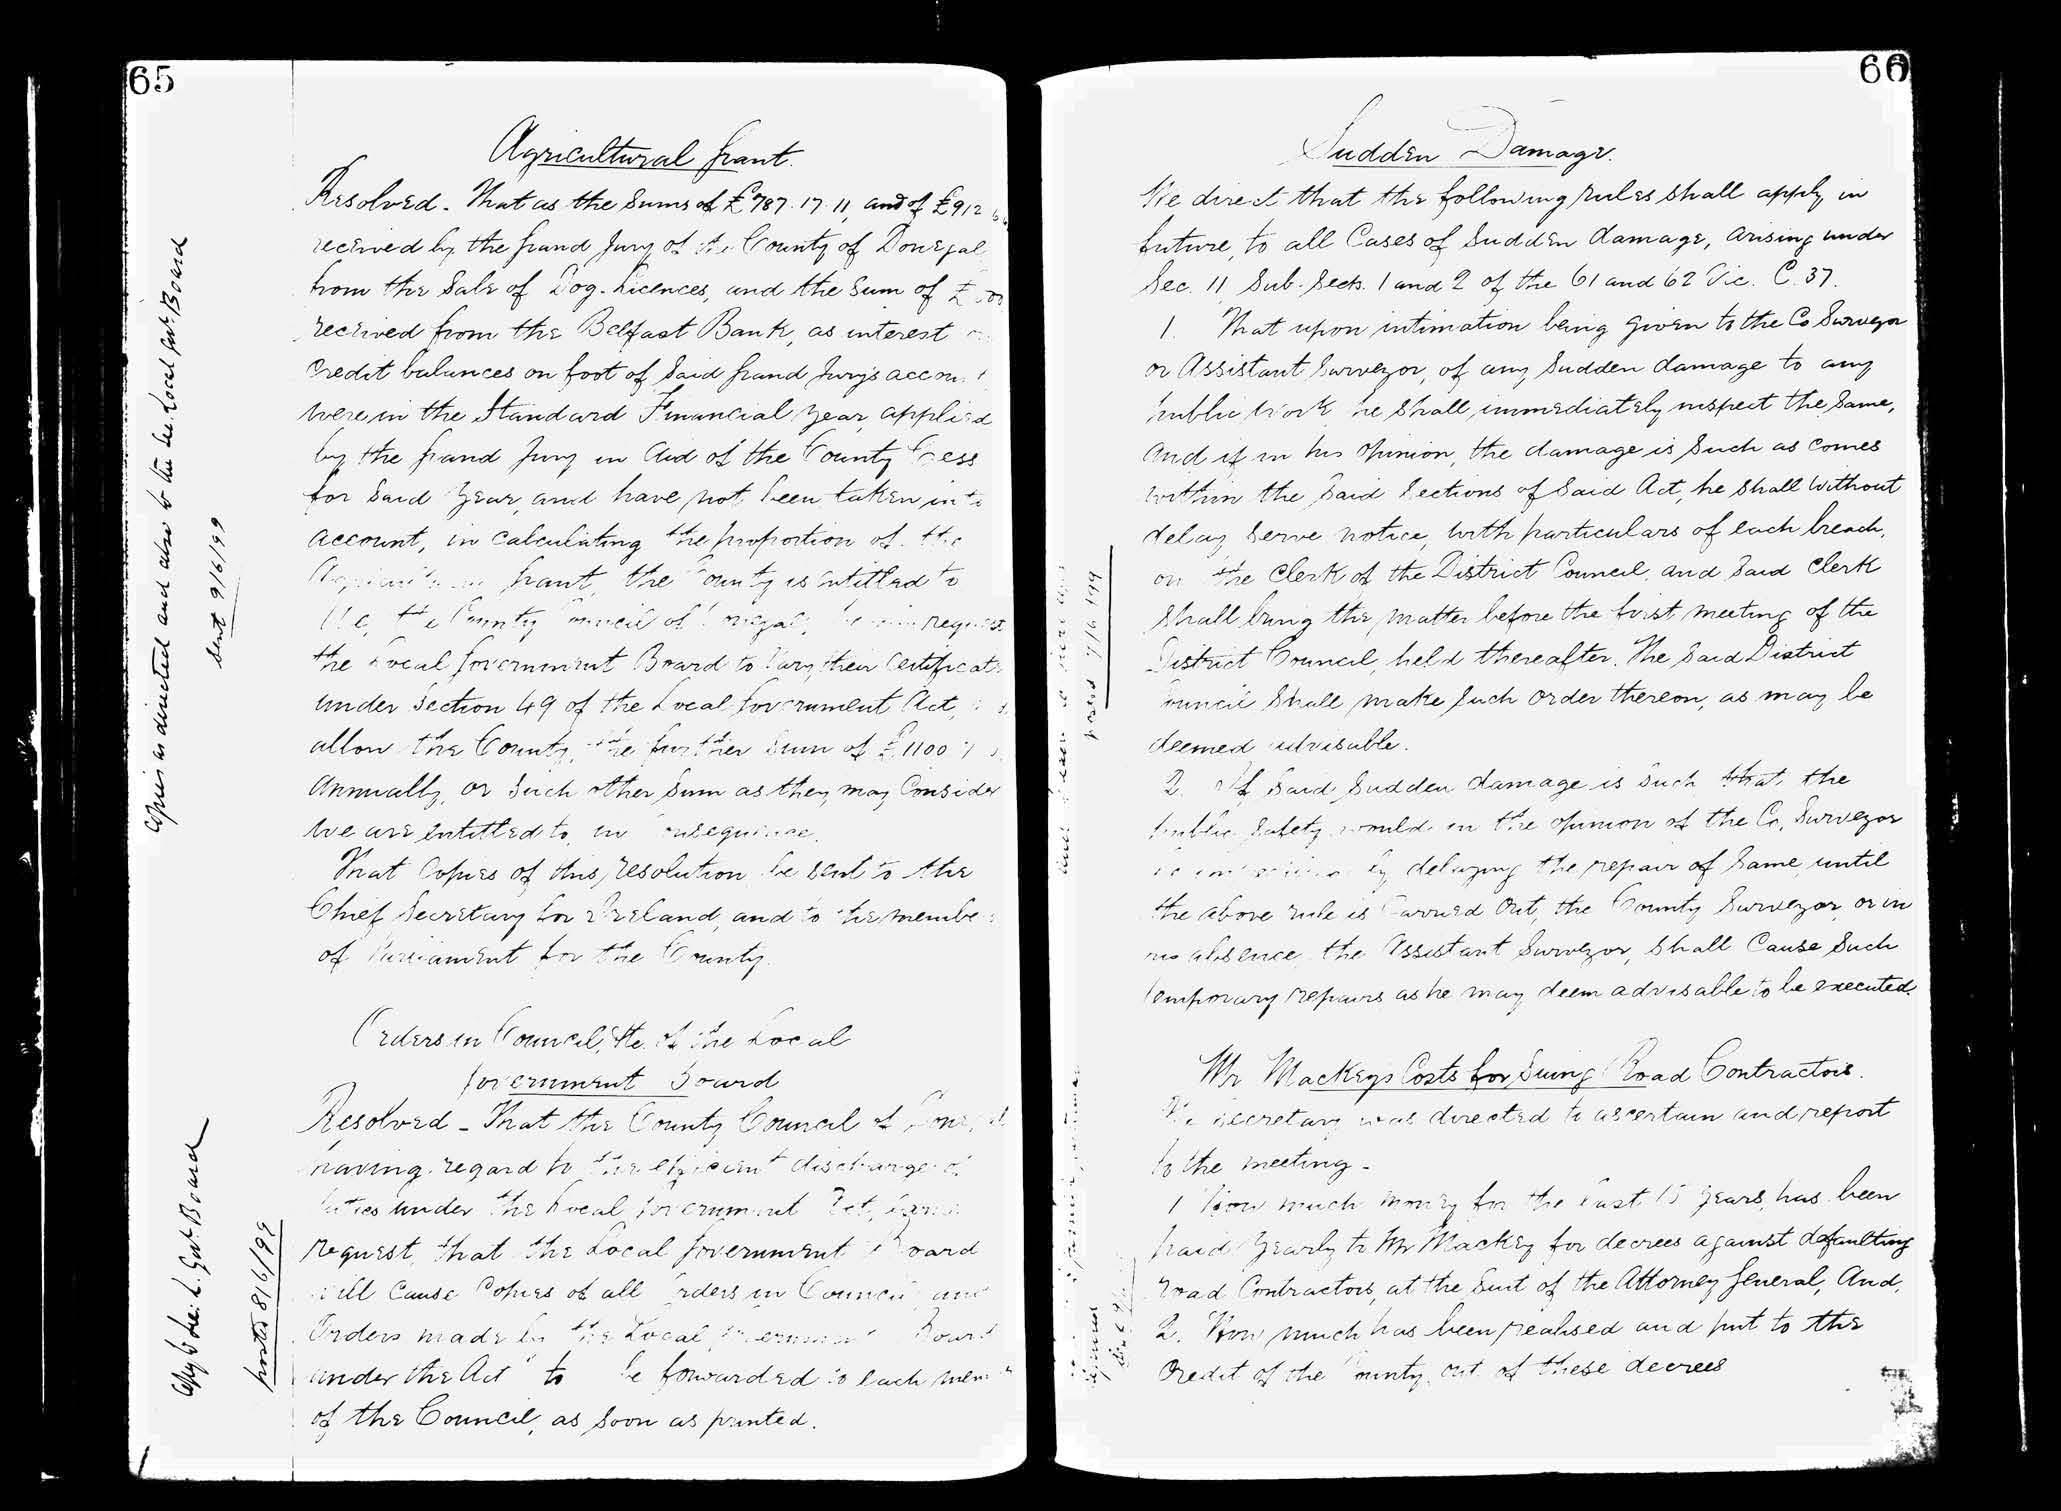 65
Agricultural Grant.
Resolved - That as the Sums of £787.17.11, and of £912
received by the Grand Jury of the County of Donegal
from the Sale of Dog-Licences, and the Sum of £
received from the Belfast Bank, as interest
credit balances on foot of Said Grand Jury's account
were in the Standard Financial year, applied
by the Grand Jury in aid of the County Cess
for Said Year, and have not been taken into
account, in calculating the proportion of the
Agricultural Grant, the County is entitled to
We, the County Council of Donegal, request
the Local Government Board to Vary their Certificate
under Section 49 of the Local Government Act,
allow the County, the further Sum of £1100
Annually, or Such other Sum as they may Consider
we are entitled to, in Consequence.
That Copies of this resolution be sent to the
Chief Secretary for Ireland, and to the members
of Parliament for the County.
Orders in Council, &c. of the Local
Government Board
Resolved - That the County Council of Donegal
having regard to the efficient discharge of
duties under the Local Government Act,
request, that the Local Government Board
will Cause Copies of all Orders in Council and
Orders made by the Local Government Board
under the Act to be forwarded to each member
of the Council, as Soon as printed.
Copies as directed and also to the Sec Local Govt. Board
Sent 9/6/99
Copy to Sec. L. Govt. Board
posted 8/6/99
66
Sudden Damage.
We direct that the following rules shall apply in
future, to all Cases of Sudden damage, arising under
Sec. 11 Sub-Sects. 1 and 2 of the 61 and 62 Vic. C. 37.
1. That upon intimation being given to the Co Surveyor
or Assistant Surveyor, of any Sudden damage to any
public work he shall immediately inspect the Same,
and if in his opinion, the damage is Such as comes
within the Said Sections of Said Act, he shall without
delay serve notice, with particulars of each breach,
on the Clerk of the District Council, and Said Clerk
shall bring the matter before the first meeting of the
District Council, held thereafter. The Said District
Council Shall make Such order thereon, as may be
deemed advisable.
2. If Said Sudden damage is Such that the
public Safety would in the opinion of the Co. Surveyor
be by delaying the repair of Same, until
the above rule is Carried Out, the County Surveyor, or in
his absence, the Assistant Surveyor, shall Cause Such
temporary repairs as he may deem advisable to be executed.
Mr Mackey's Costs for Suing Road Contractors.
The Secretary was directed to ascertain and report
to the meeting -
1 How much money for the last 15 years, has been
paid Yearly to Mr Mackey for decrees against defaulting
road Contractors, at the Suit of the Attorney General, And,
2. How much has been realised and put to the
Credit of the County, out of these decrees
posted 7/6/99